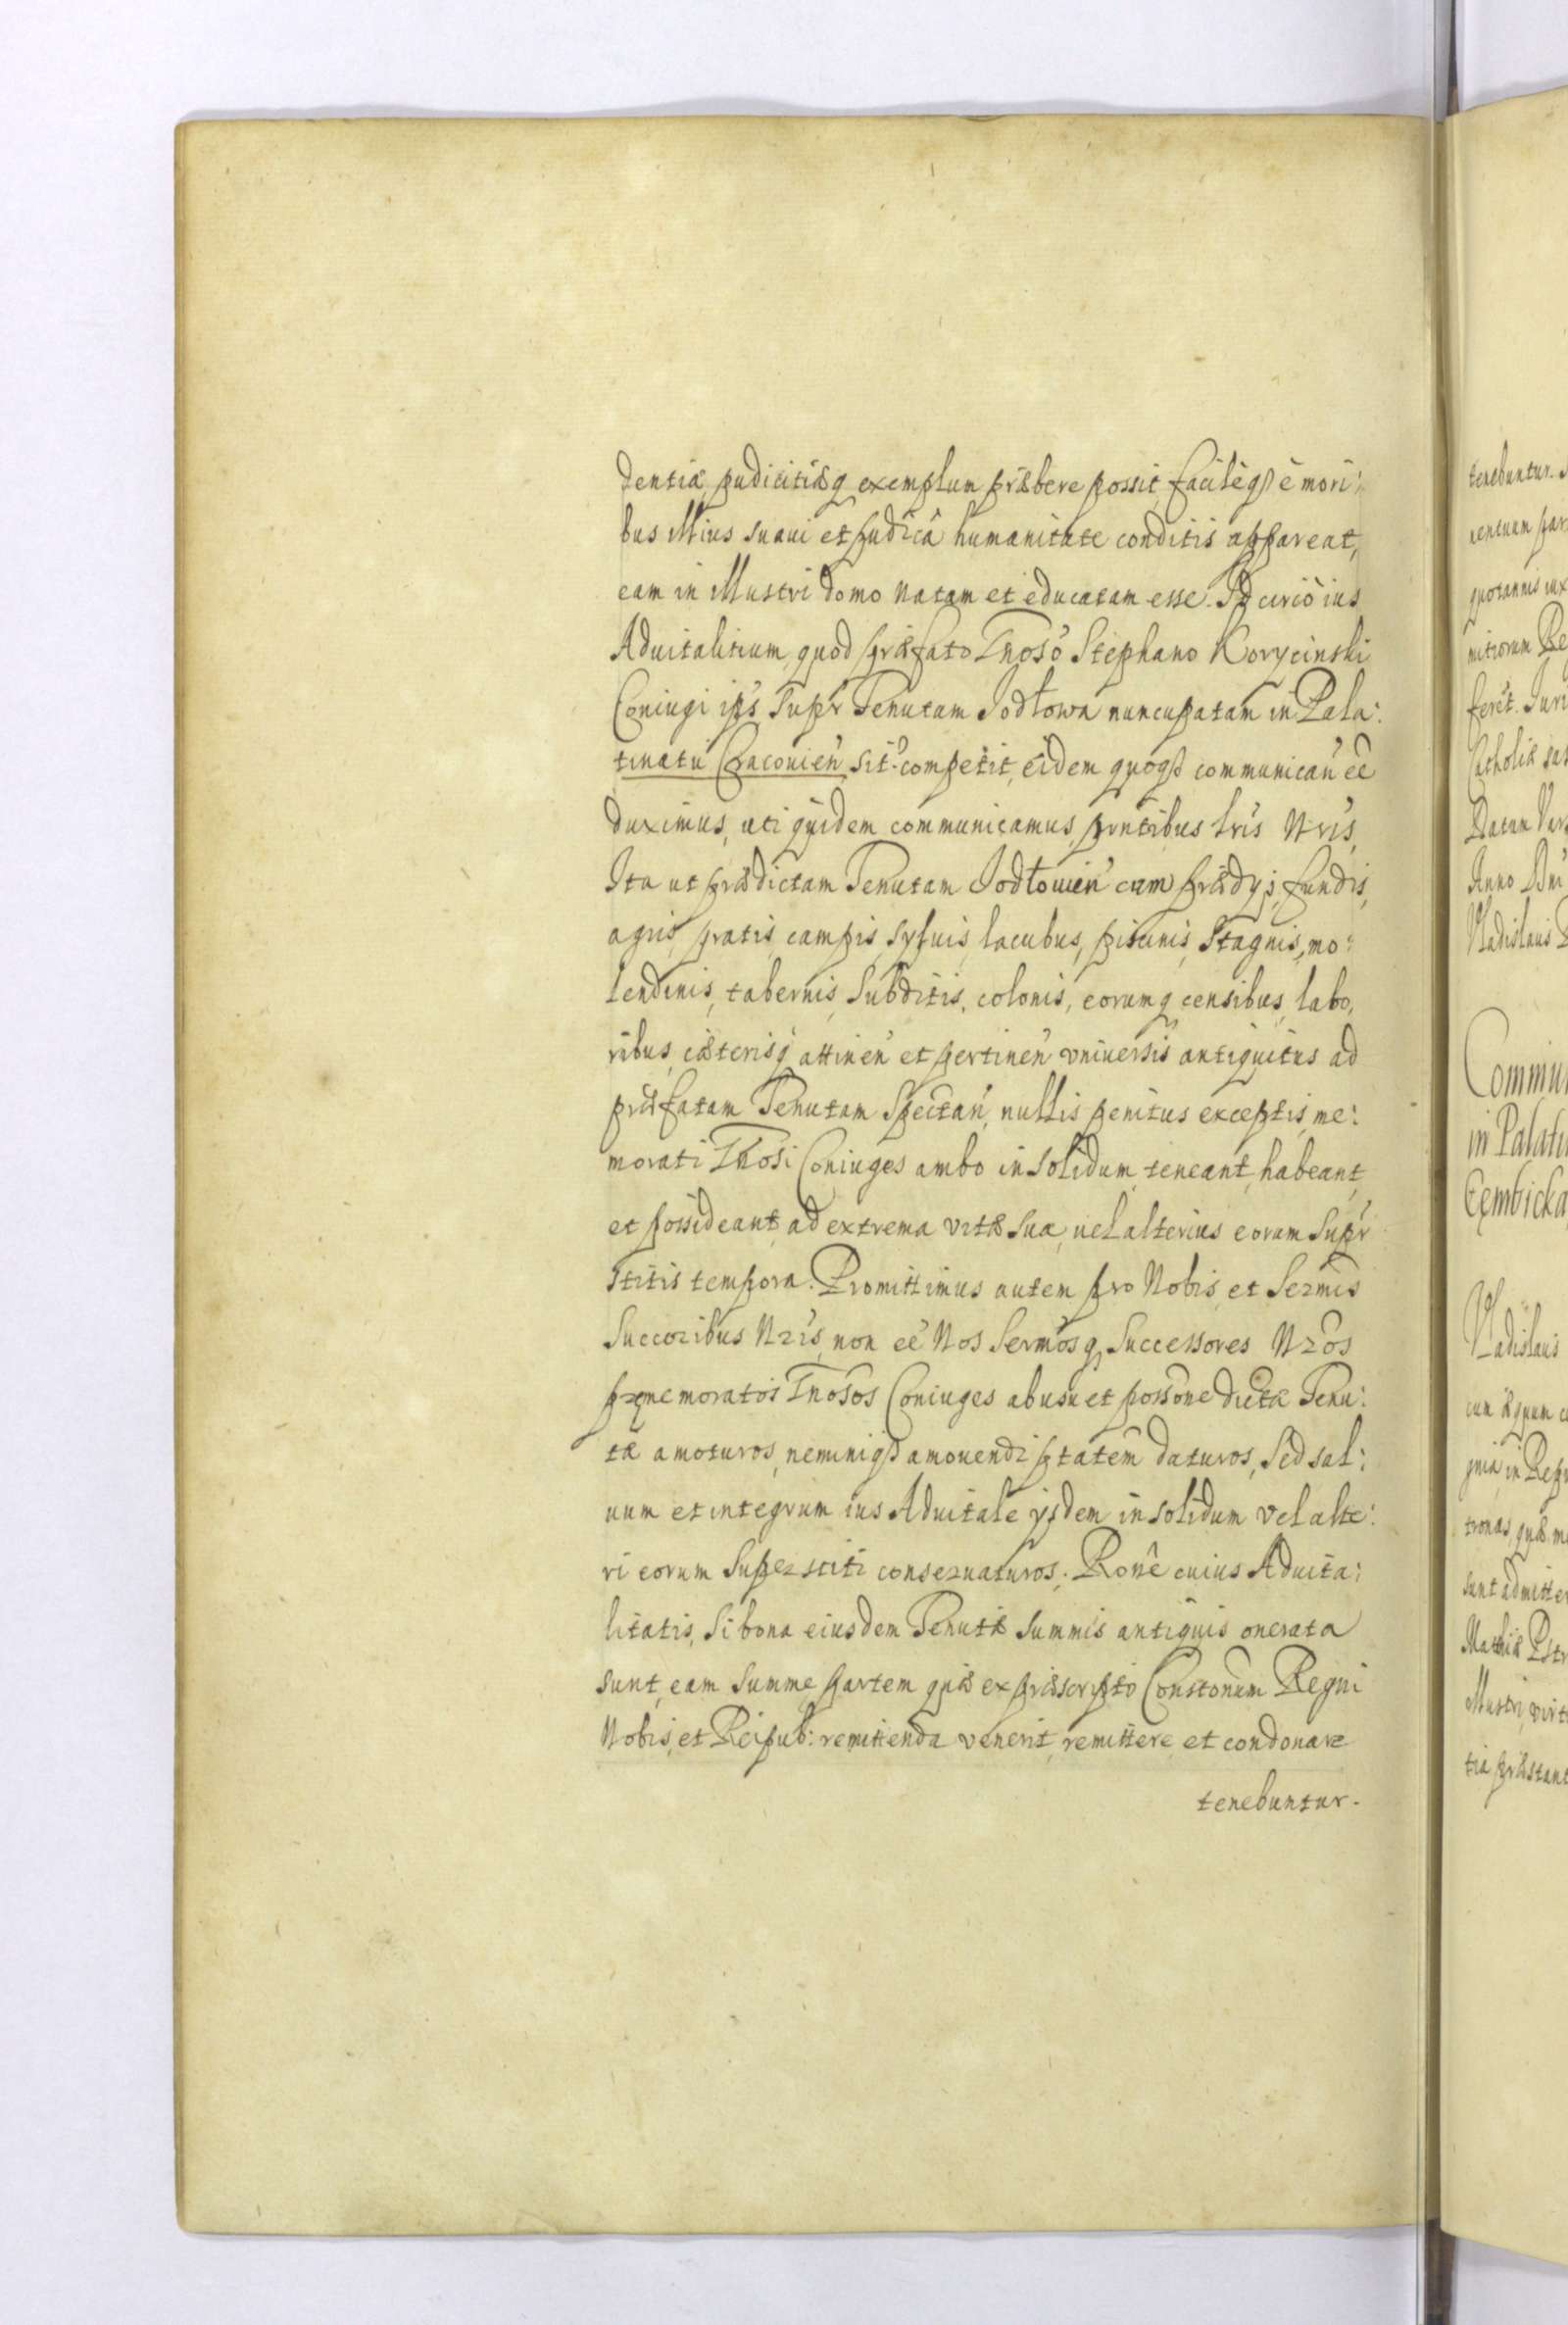 dentiæ pudicitiæq exemplum præbere possit, facileq è mori:
bus illius suaui et pudicâ humanitate conditis appareat,
eam in illustri domo natam et educatam esse. Id circò ius
Aduitalitium, quod præfato Gnoso Stephano Korycinski
Coniugi ips supr Tenutam Jodłowa nuncupatam in Pala:
tinatu Cracouien sit. competit, eidem quoq communican ee
duximus, uti quidem communicamus, pntibus lris Nris,
Ita ut prædictam Tenutam Jodłouien cum prædijs, fundis,
agris, pratis, campis, syluis, lacubus, piscinis, stagnis, mo:
lendinis, tabernis, subditis, colonis, eorumq censibus, labo,
ribus, cæterisq attinen et pertinen vniuersis antiquitus ad
præfatam Tenutam spectan, nullis penitus exceptis, me:
morati Gnosi Coniuges ambo in solidum teneant, habeant,
et possideant, ad extrema vitæ sua, uel alterius eorum supr
stitis tempora. Promittimus autem pro Nobis, et Sermis
Succoribus Nris, non ee Nos Sermosq Successores Nros
præmemoratos Gnosos Coniuges ab usu et possone dictæ Tenu:
tæ amoturos, neminiq amouendi ptatem daturos, sed sal:
uum et integrum ius Aduitale ijsdem in solidum vel alte:
ri eorum superstiti conseruaturos. Rone cuius Aduita:
litatis, si bona eiusdem Tenutæ summis antiquis onerata
sunt, eam summe partem quæ ex præscripto Constonum Regni
Nobis, et Reipub: remittenda venerit, remittere et condonare
tenebuntur.
tenebuntur.
uentuum par
quotannis iux
mitiorum Re
feret. Juri
Catholiæ sal
Datum Var
Anno Dni
Vladislaus
Commun
in Palati
Cęmbicka
Vladislaus
cum æquum c
gnia, in Repu
tronas, quæ m
sunt admitte
Mathiæ Pstr
illustri, virt
tia præstant